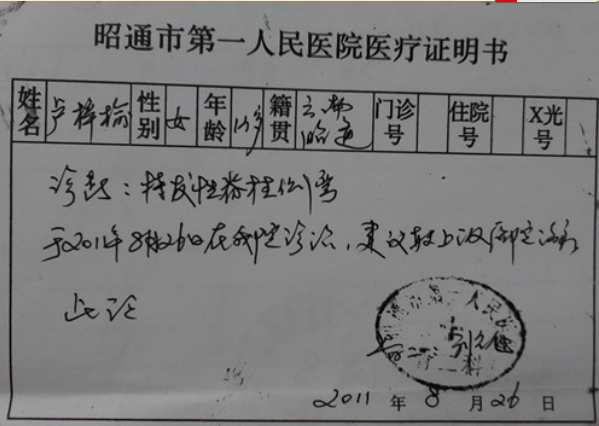 昭通市第一人民医院医疗证明书
姓名 卢梓榆 性别 女 年龄 13岁 籍贯 云南昭通 门诊号 住院号 X光号
诊断：特发性脊柱侧弯
于2011年8月26日在我院诊治，建议转上级医院治疗
此证
昭通市第一人民医
骨一科
2011年8月26日